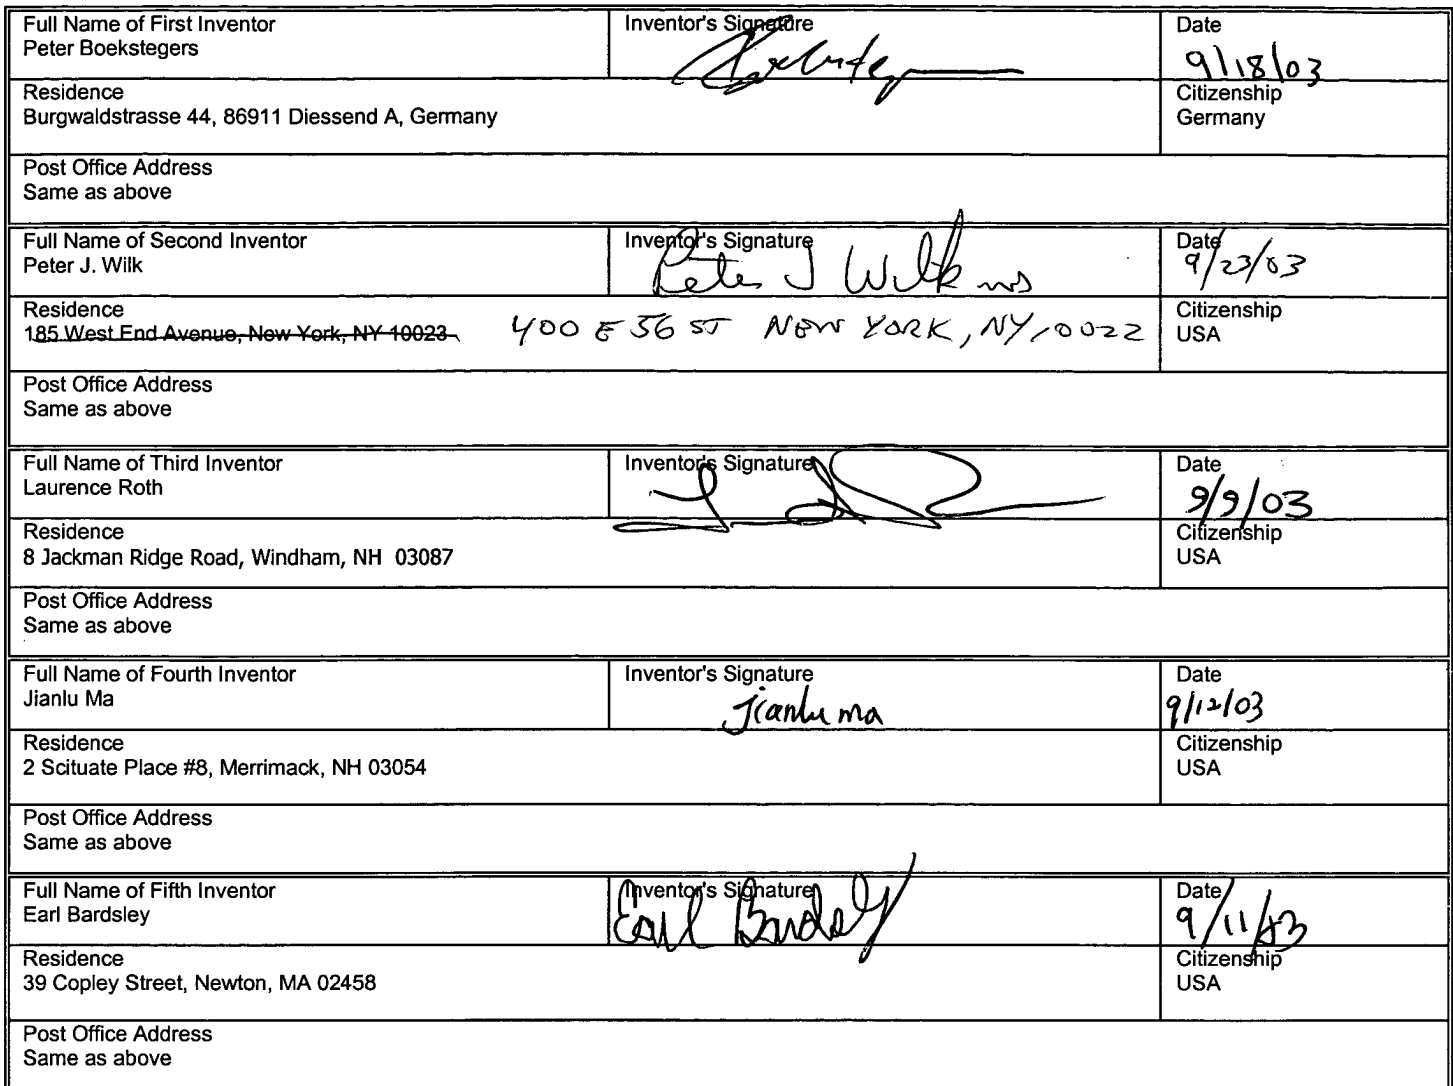 Full Name of First Inventor
Peter Boekstegers
Inventor's Signature
Date
9/18/03
Residence
Burgwaldstrasse 44, 86911 Diessend A, Germany
Citizenship
Germany
Post Office Address
Same as above
Full Name of Second Inventor
Peter J. Wilk
Inventor's Signature
Peter J Wilk
Date
9/23/03
Residence
185 West End Avenue, New York, NY 10023
400 E 56 ST NEW YORK, NY 10022
Citizenship
USA
Post Office Address
Same as above
Full Name of Third Inventor
Laurence Roth
Inventor's Signature
Date
9/9/03
Residence
8 Jackman Ridge Road, Windham, NH 03087
Citizenship
USA
Post Office Address
Same as above
Full Name of Fourth Inventor
Jianlu Ma
Inventor's Signature
jianlu ma
Date
9/12/03
Residence
2 Scituate Place #8, Merrimack, NH 03054
Citizenship
USA
Post Office Address
Same as above
Full Name of Fifth Inventor
Earl Bardsley
Inventor's Signature
Earl Bardsley
Date
9/11/03
Residence
39 Copley Street, Newton, MA 02458
Citizenship
USA
Post Office Address
Same as above